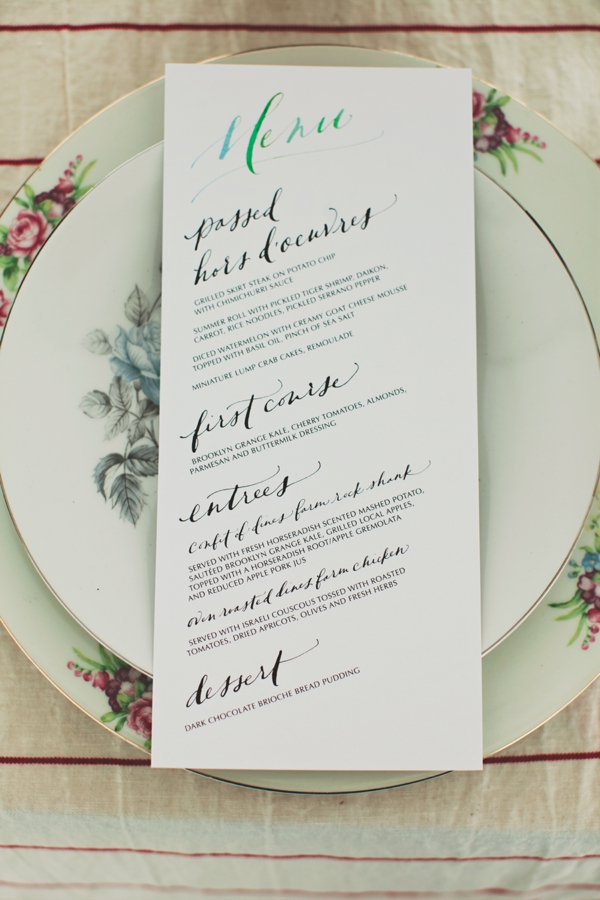 Menu
passed
hors d'oeuvres
GRILLED SKIRT STEAK ON POTATO CHIP
WITH CHIMICHURRI SAUCE
SUMMER ROLL WITH PICKLED TIGER SHRIMP, DAIKON,
CARROT, RICE NOODLES, PICKLED SERRANO PEPPER
DICED WATERMELON WITH CREAMY GOAT CHEESE MOUSSE
TOPPED WITH BASIL OIL, PINCH OF SEA SALT
MINIATURE LUMP CRAB CAKES, REMOULADE
first course
BROOKLYN GRANGE KALE, CHERRY TOMATOES, ALMONDS,
PARMESAN AND BUTTERMILK DRESSING
entrees
confit of dines farm rock shank
SERVED WITH FRESH HORSERADISH SCENTED MASHED POTATO,
SAUTÉED BROOKLYN GRANGE KALE, GRILLED LOCAL APPLES,
TOPPED WITH A HORSERADISH ROOT/APPLE GREMOLATA
AND REDUCED APPLE PORK JUS
oven roasted dines farm chicken
SERVED WITH ISRAELI COUSCOUS TOSSED WITH ROASTED
TOMATOES, DRIED APRICOTS, OLIVES AND FRESH HERBS
dessert
DARK CHOCOLATE BRIOCHE BREAD PUDDING